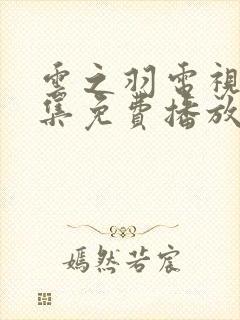 雲之羽電視
集免費播放
嫣然若宸